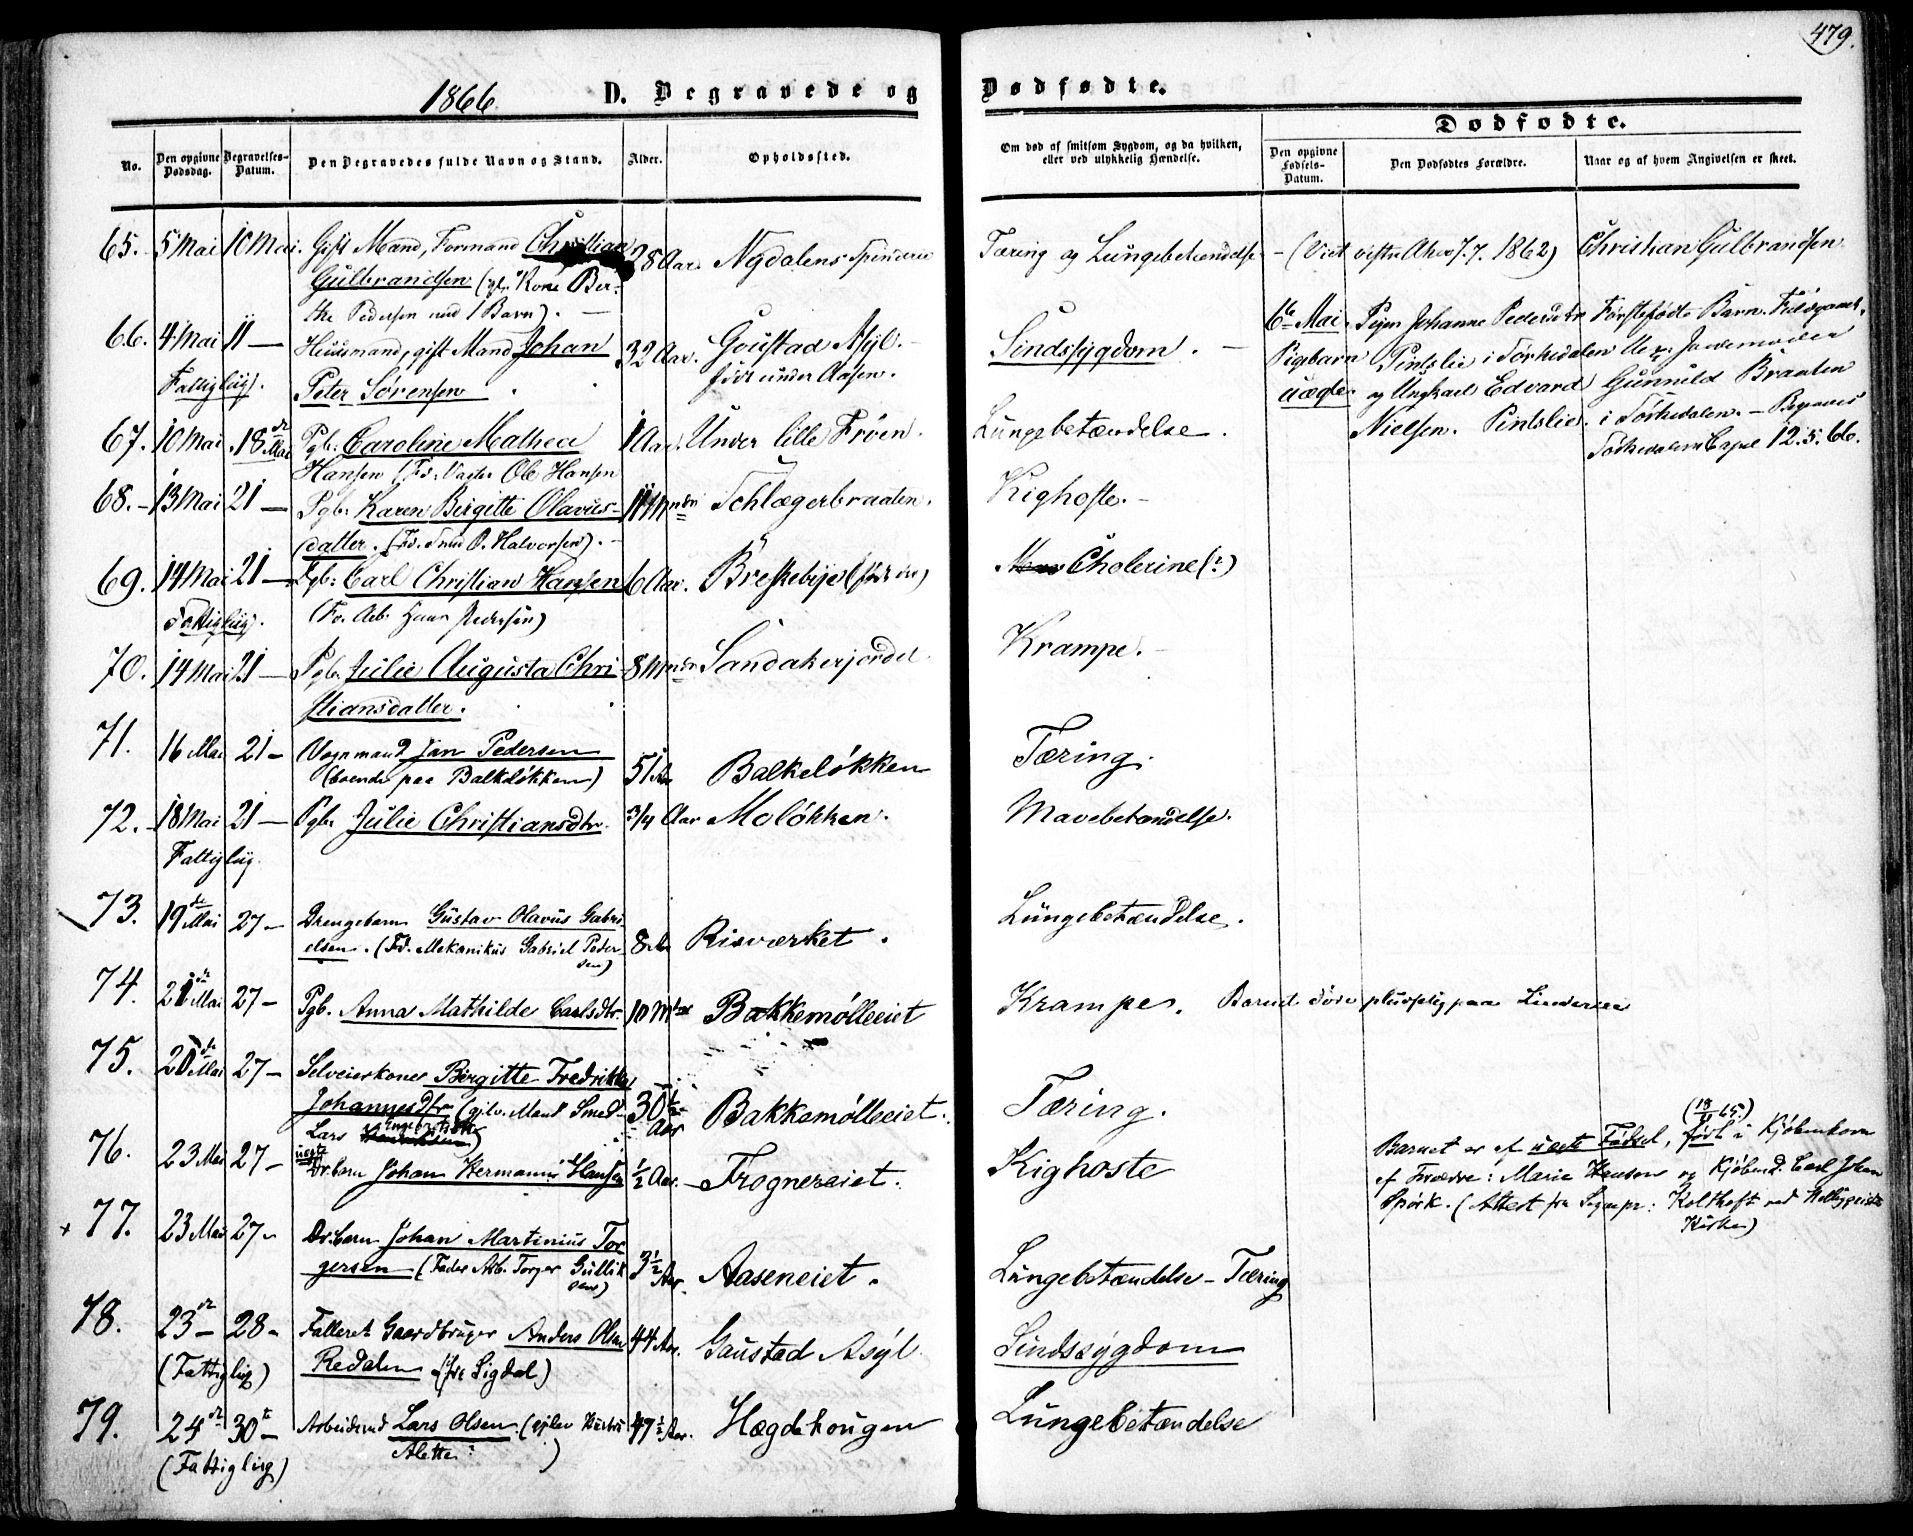 479.
1866. D. Begravede og Dødfødte.
No. Den opgivne Dødsdag. Begravelses-Datum. Den Begravedes fulde Navn og Stand. Alder. Opholdssted. Om død af smitsom Sygdom, og da hvilken, eller ved ulykkelig Hændelse.
Dødfødte.
Den opgivne Fødsels-Datum. Den Dødfødtes Forældre. Naar og af hvem Angivelsen er skeet.
65. 5 Mai 10 Mai. Gift Mand, Formand Christian 28 Aar. Nydalens Spinderie Tæring og Lungebetændelse
Gulbrandsen (gl. Kone Ber-
the Pedersen med 1 Barn).
1862) Christian Gulbrandsen
66. 4 Mai 11 — Huusmand, gift Mand Johan 32 Aar. Goustad Asyl. Sindssygdom.
Fattiglig. Peter Sørensen født under Aasen.
6te Mai. Pigen Johanne Pedersdtr Førstefødte Barn.
Pigebarn Pintslie i Sørkedalen Jordemoder
uægte og Ungkarl Edvard Gunnild Braaten
Nielsen. Pintslie. i Sørkedalen. — Begraves
Sørkedalens Capel 12.5.66.
67. 10 Mai 18de Mai Pgb. Caroline Mathea 1 Aar. Under lille Frøen. Lungebetændelse.
Hansen (Fd. Vagter Ole Hansen
68. 13 Mai 21 — Pgb. Karen Birgitte Olavus- 11 Mndr Schlægerbraaten. Kighoste.
datter. (Fd. Smed O. Halvorsen).
69. 14 Mai 21 — Pgb: Carl Christian Hansen 6 Aar. Breskebye (født in) Cholerine (?)
Fattiglig. (Fa. Arb. Hans Pedersen)
70. 14 Mai 21 — Pgb. Julie Augusta Chri- 8 Mndr Sandakerjordet. Krampe.
stiansdatter.
71. 16 Mai 21 — Vognmand Jan Pedersen 51 Aar Balkeløkken Tæring.
(boende paa Balkeløkken)
72. 18 Mai 21 — Pgb. Julie Christiansdtr. 3/4 Aar Moløkken. Mavebetændelse.
Fattiglig.
73. 19de Mai 27 — Drengebarn Gustav Olavus Gabri- 8 Aar Risværket. Lungebetændelse.
elsen. (Fd. Mekanikus Gabriel Peder-
sen)
74. 21de Mai 27 — Pgb. Anna Mathilde Carlsdtr. 10 Mdr Bakkemølleeiet Krampe. Barnet døde pludselig paa Linderud
75. 20de Mai 27 — Selveierkone Birgitte Fredrikke 30 1/2 Aar Bakkemølleeiet. Tæring.
Johannesdtr (gjlv. Mand Smed
Lars Engebretsen)
76. 23 Mai 27 — uægte Dr.barn Johan Hermann Hansen 1/2 Aar. Frognereiet. Kighoste
(18/11 65.)
Barnet er af uægte Fødsel, født i Kjøbenhavn
af Forældre: Marie Hansen og Carl Johan
Spørk. (Attest fra Sognepr: Kolthoff ved Helliggeistes
Kirke)
77. 23 Mai 27 — Dr.barn Johan Martinius Tor 3 1/2 Aar. Aaseneiet. Lungebetændelse — Tæring
gersen (Fader Arb. Torger Gullik
sen)
78. 23de — 28 — Falleret Gaardbruger Anders Olsen 44 Aar. Gaustad Asyl. Sindssygdom
(Fattiglig) Redalen (fra Sigdal)
79. 24de 30te — Arbeidsmd Lars Olsen. (gjlev Hustru 47 1/2 Aar. Hægdehougen Lungebetændelse
(Fattiglig) Alette )